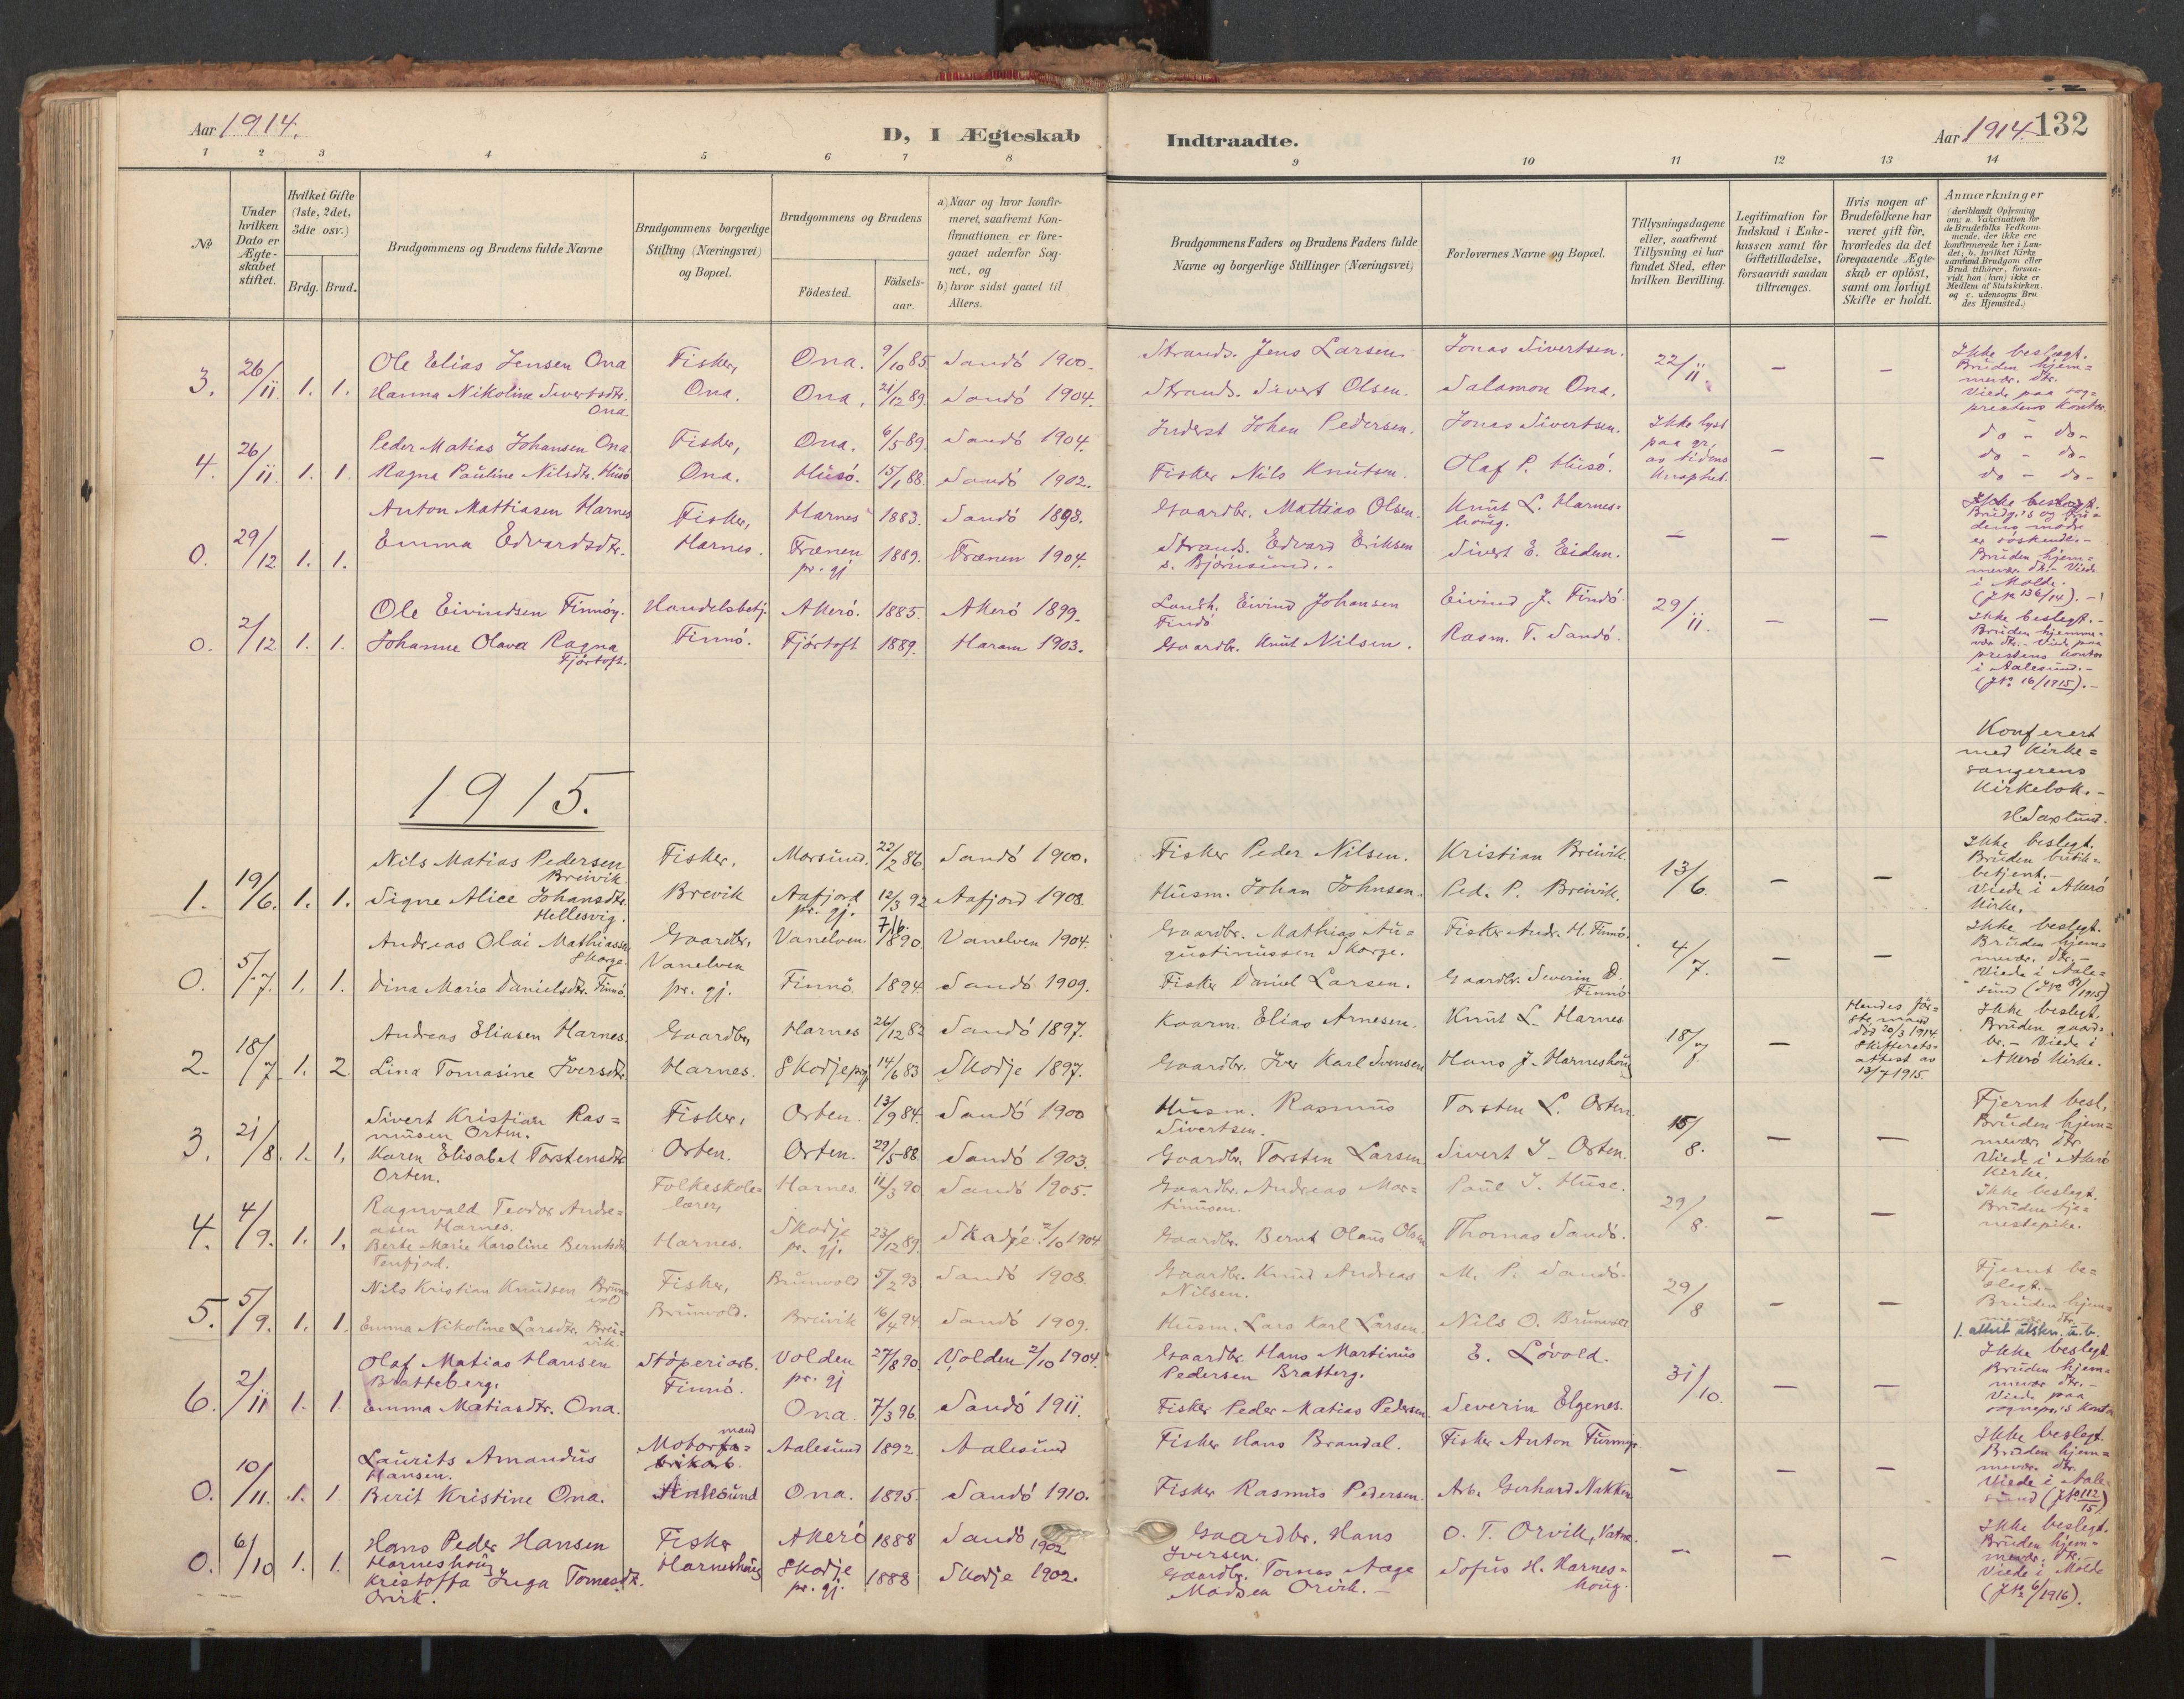 Aar 1914.
D, I Ægteskab
Indtraadte.
Aar 1914. 132
1 2 3 4 5 6 7 8 9 10 11 12 13 14
No
Under hvilken Dato er Ægteskabet stiftet.
Hvilket Gifte (1ste, 2det, 3die osv.)
Brdg. Brud.
Brudgommens og Brudens fulde Navne
Brudgommens borgerlige Stilling (Næringsvei) og Bopæl.
Brudgommens og Brudens
Födested.
Födselsaar.
a) Naar og hvor konfirmeret, saafremt Konfirmationen er foregaaet udenfor Sognet, og
b) hvor sidst gaaet til Alters.
Brudgommens Faders og Brudens Faders fulde Navne og borgerlige Stillinger (Næringsvei)
Forlovernes Navne og Bopæl.
Tillysningsdagene eller, saafremt Tillysning ei har fundet Sted, efter hvilken Bevilling.
Legitimation for Indskud i Enkekassen samt for Giftetilladelse, forsaavidt saadan tiltrænges.
Hvis nogen af Brudefolkene har været gift för, hvorledes da det foregaaende Ægteskab er oplöst, samt om lovligt Skifte er holdt.
Anmærkninger
(deriblandt Oplysning om: a. Vakcination for de Brudefolks Vedkommende, der ikke ere konfirmerede her i Landet; b. hvilket Kirkesamfund Brudgom eller Brud tilhörer, forsaavidt han (hun) ikke er Medlem af Statskirken. og c. udensogns Brudes Hjemsted.)
3. 26/11 1. 1. Ole Elias Jensen Ona Fisker, Ona. 9/10 85. Sandö 1900. Strands. Jens Larsen. Jonas Sivertsen. 22/11 — — Ikke beslægt. Bruden hjem=
Hanna Nikoline Sivertsdtr. Ona. Ona. Ona. 21/12 89. Sandö 1904. Strands. Sivert Olsen. Salamon Ona. mevær. dtr. Viede paa sog=prestens kontor.
4. 26/11 1. 1. Peder Matias Johansen Ona Fisker, Ona. 6/5 89. Sandö 1904. Inderst Johan Pedersen. Jonas Sivertsen. Ikke lyst paa gr. av tidens knaphet. — — do - do-
Ragna Pauline Nilsdtr. Husö Ona. Husö. 15/1 88. Sandö 1902. Fisker Nils Knutsen. Olaf P. Husö. do - do-
do - do-
0. 29/12 1. 1. Anton Mattiasen Harnes Fisker, Harnes 1883. Sandö 1898. Gaardbr. Mattias Olsen. Knut L. Harnes=houg. — — — Ikke beslægt. Brudg.'s og bru=dens mødr er söskende.-
Emma Edvardsdtr. Harnes. Frænen pr. gj 1889. Frænen 1904. Strands. Edvard Eriksen s. Bjørnsund.- Sivert E. Eiden. Bruden hjem=mevær. dtr.- Viede i Molde. (JNr 136/14).-
0. 2/12 1. 1. Ole Eivindsen Finnöy. Handelsbetj. Akerö. 1885. Akerö 1899. Landh. Eivind Johansen Findö Eivind J. Findö. 29/11. — — Ikke beslegt.-
Johanne Olava Ragna Fjörtoft. Finnö. Fjörtoft 1889. Haram 1903. Gaardbr. Knut Nilsen. Rasm. T. Sandö. Bruden hjemme=vær dtr.- Viede paa prestens kontor i Aalesund.- (JNo 16/1915).-
Konferert med Kirke=sangerens Kirkebok.-
H Saxlund.
1915.
1. 19/6. 1. 1. Nils Matias Pedersen Breivik Fisker, Morsund. 22/2 86. Sandö 1900. Fisker Peder Nilsen. Kristian Breivik. 13/6. — — Ikke beslegt. Bruden butik=betjent.-
Signe Alice Johansdtr. Hellesvig. Brevik Aafjord pr. gj. 12/3 92 Aafjord 1908. Husm. Johan Johnsen. Ped. P. Breivik. Viede i Akerö Kirke.
0. 5/7. 1. 1. Andreas Olai Mathiassen Skorge. Gaardbr, Vanelven pr. gj. Vanelven. 7/6 1890. Vanelven 1904. Gaardbr. Mathias Au=gustinussen Skorge. Fisker Andr. H. Finnö. 4/7. — — Ikke beslegt. Bruden hjem=mevær. dtr.-
Dina Marie Danielsdtr. Finnö. Finnö. 1894. Sandö 1909. Fisker Daniel Larsen. Gaardbr. Severin D. Finnö. Viede i Aale=sund (JNo 81/1915)
2. 18/7 1. 2. Andreas Eliasen Harnes. Gaardbr, Harnes 26/12 82 Sandö 1897. Kaarm. Elias Arnesen. Knut L. Harnes 18/7 — Hendes för=ste mand död 20/3 1914. Skifterets=attest av 13/7 1915. Ikke beslegt. Bruden gaard=br.- Viede i Akerö Kirke.
Lina Tomasine Iversdtr. Harnes. Skodje prgj 14/6 83 Skodje 1897. Gaardbr. Iver Karl Svensen Hans J. Harneshoug
3. 21/8. 1. 1. Sivert Kristian Ras=musen Orten. Fisker, Orten. 13/9 84. Sandö 1900 Husm. Rasmus Sivertsen. Torsten L. Orten. 15/8. — — Fjernt besl. Bruden hjem=mevær. dtr.
Karen Elisabet Torstensdtr. Orten. Orten. Orten. 29/5 88 Sandö 1903. Gaardbr. Torsten Larsen Sivert I. Orten. Viede i Akerö Kirke.
4. 4/9. 1. 1. Ragnvald Teodor Andre=asen Harnes. Folkeskole=lærer, Harnes. 11/3 90 Sandö 1905. Gaardbr. Andreas Mar=tinusen. Paul I. Huse. 29/8. — — Ikke beslegt. Bruden tje=nestepike.
Berte Marie Karoline Berntsdtr Tenfjord. Harnes. Skodje pr. gj. 23/12 89. Skodje 2/10 1904 Gaardbr. Bernt Olaus Olsen Thomas Sandö.
5. 5/9. 1. 1. Nils Kristian Knudsen Brunvold Fisker, Brunvold 5/2 93 Sandö 1908. Gaardbr. Knud Andreas Nilsen. M. P. Sandö. 29/8 — — Fjernt be=slegt.- Bruden hjem=mevær. dtr.-
Emma Nikoline Larsdtr. Brei=vik. Brunvold. Breivik 16/4 94 Sandö 1909. Husm. Lars Karl Larsen. Nils O. Brunvold 1. attest utskr. u.b.
6. 2/11 1. 1. Olaf Matias Hansen Bratteberg. Stöperiarb. Finnö. Volden pr. gj 27/8 90. Volden 2/10 1904. Gaardbr. Hans Martinus Pedersen Bratterg. E. Lövold. 31/10. — — Ikke beslegt. Bruden hjem=mevær dtr.-
Emma Matiasdtr. Ona. Ona. 7/3 96. Sandö 1911. Fisker Peder Matias Pedersen. Severin Elgenes. Viede paa sognepr.'s kontor
0. 10/11. 1. 1 Laurits Amandus Hansen. Motorfa=brikarb. mand Aalesund 1892 Aalesund Fisker Hans Brandal. Fisker Anton — — — Ikke beslegt. Bruden hjem=mevær. dtr.
Berit Kristine Ona. Aalesund Ona. 1895. Sandö 1910. Fisker Rasmus Pedersen. Arb. Gerhard Nakken Viede i Aale=sund (JNo 112/15)
0. 6/10 1. 1. Hans Peder Hansen Harneshoug Fisker Harneshoug Akerö 1888 Sandö 1902 Gaardbr. Hans Iversen. O. T. Orvik, Vatne. — — — Ikke beslegt. Bruden hjem=mevær. dtr.-
Kristoffa Inga Tomasdtr. Orvik. Skodje pr. gj. 1888 Skodje 1902. Gaardbr. Tomas Aage Madsen Orvik.- Sofus H. Harnes=houg. Viede i Molde (JNo 6/1916).